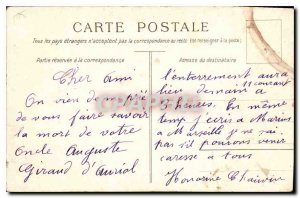 CARTE POSTALE
Tous les pays étrangers n'acceptent pas la correspondance au recto (Se renseigner à la poste)
Partie réservée à la correspondance
Adresse du destinataire
Cher ami
On vien de
de vous faire savoir
la mort de votre
Oncle Auguste
Giraud d'Auriol
l'enterrement aura
lieu demain à 11 courant
heures. En même
temp j'écris a Marius
a Marseille je ne sai
pas sil pourons venir
caresse a tous
Honorine Chauvin